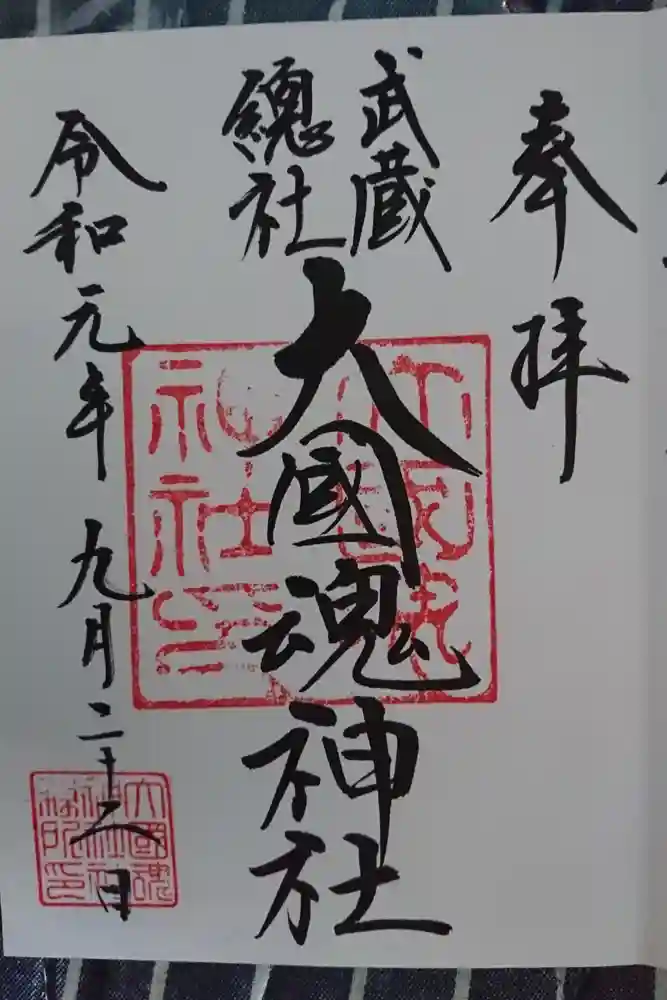 奉拝
武蔵
總社
大國魂神社
令和元年 九月二十八日
大國魂
神社印
大國魂
神社社
務所印